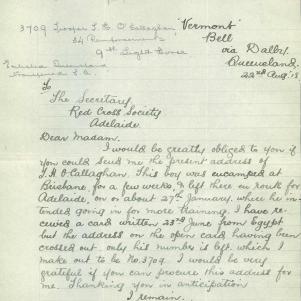 3709 Trooper T. H. O'Callaghan
34 Reinforcements
9th Light Horse
"Vermont"
Bell
via Dalby
Queensland.
22nd Aug '18
To
The Secretary
Red Cross Society
Adelaide
Dear Madam.
I would be greatly obliged to you if
you could send me the present address of
T. H O'Callaghan. This boy was encamped at
Brisbane for a few weeks & left there en route for
Adelaide, on or about 27th January. where he in-
tended going in for more training. I have re-
ceived a card written 23rd June, from Egypt
but the address on the open card having been
crossed out. only his number is left. which I
make out to be No. 3709. I would be very
grateful if you can procure this address for
me. Thanking you in anticipation
I remain.